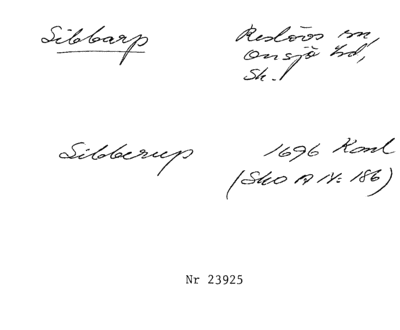 Sibbarp Reslövs sn,
Onsjö hd,
Sk.
Sibberup 1696 Konl
(SkO A IV: 186)
Nr 23925